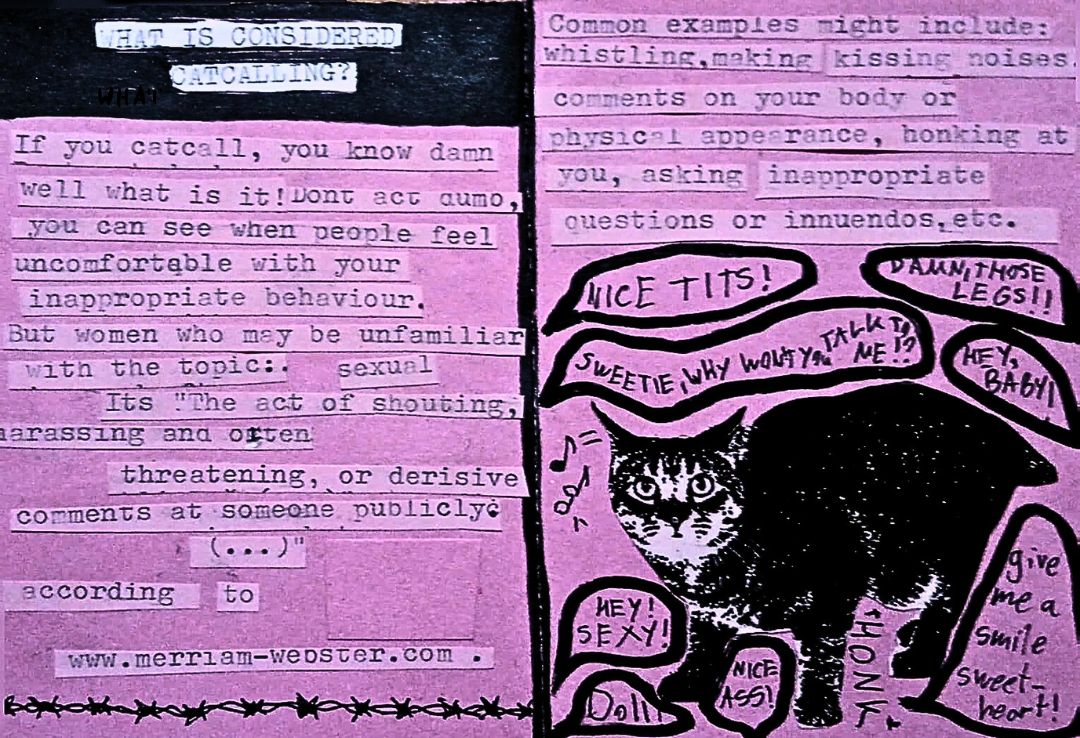 WHAT IS CONSIDERED
CATCALLING?
WHAT
If you catcall, you know damn
well what is it!Dont act dumb,
you can see when people feel
uncomfortable with your
inappropriate behaviour.
But women who may be unfamiliar
with the topic:. sexual
Its "The act of shouting,
harassing and often
threatening, or derisive
comments at someone publicly
(...)"
according to
www.merriam-webster.com .
Common examples might include:
whistling,making kissing noises
comments on your body or
physical appearance, honking at
you, asking inappropriate
questions or innuendos,etc.
NICE TITS!
DAMN,THOSE
LEGS!!
SWEETIE,WHY WON'T YOU TALK TO
ME!?
HEY,
BABY!
give
me a
smile
sweet-
heart!
HEY!
SEXY!
NICE
ASS!
Doll!
*HONK*